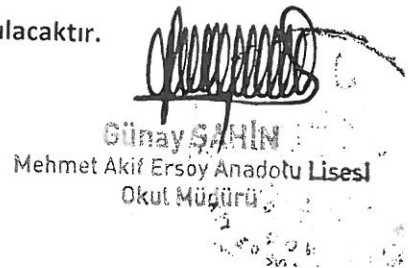 ılacaktır.
Günay ŞAHİN
Mehmet Akif Ersoy Anadolu Lisesi
Okul Müdürü